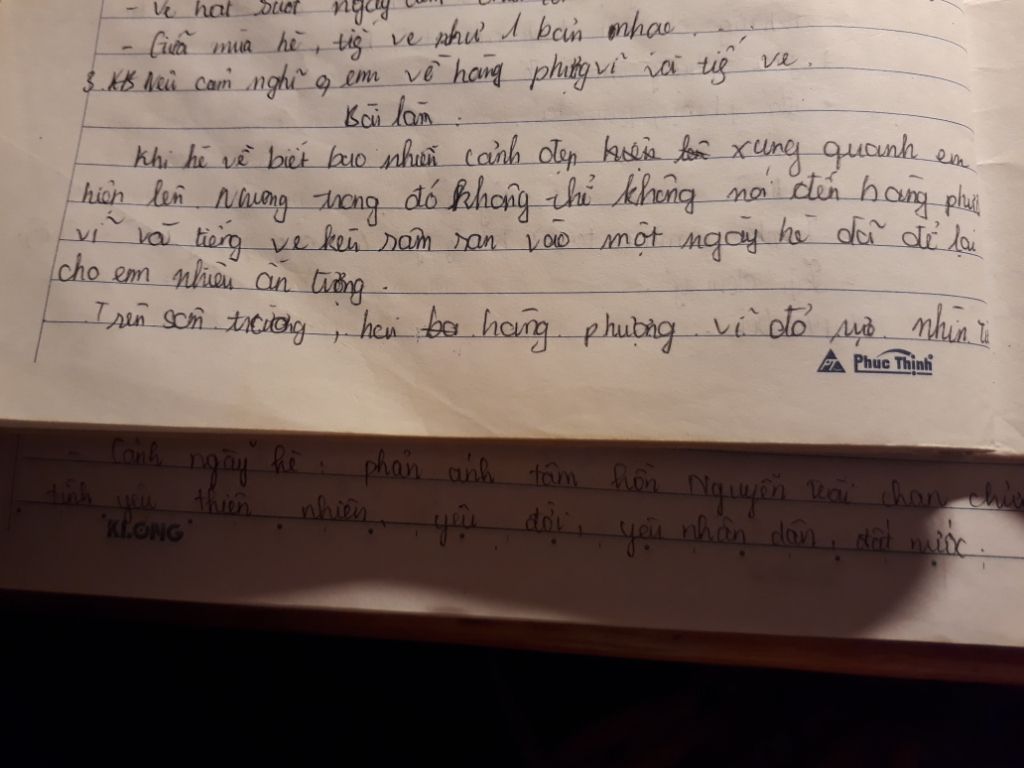 - Ve hát suốt ngày
- Giữa mùa hè, tiế ve như 1 bản nhạc...
3. KB Nêu cảm nghĩ of em về hàng phượng vĩ và tiế ve.
Bài làm.
Khi hè về biết bao nhiên cảnh đẹp xung quanh em
hiện lên. Nhưng trong đó không thể không nói đến hàng phượ
vĩ và tiếng ve kêu râm ran vào một ngày hè đã để lại
cho em nhiều ấn tượng.
Trên sân trường, hai hàng phượng vĩ đỏ rực nhìn từ
PT Phuc Thịnh
- Cảnh ngày hè: phản ánh tâm hồn Nguyễn Trãi chan chứa
tình yêu thiên nhiên, yêu đời, yêu nhân dân, đất nước.
KLONG